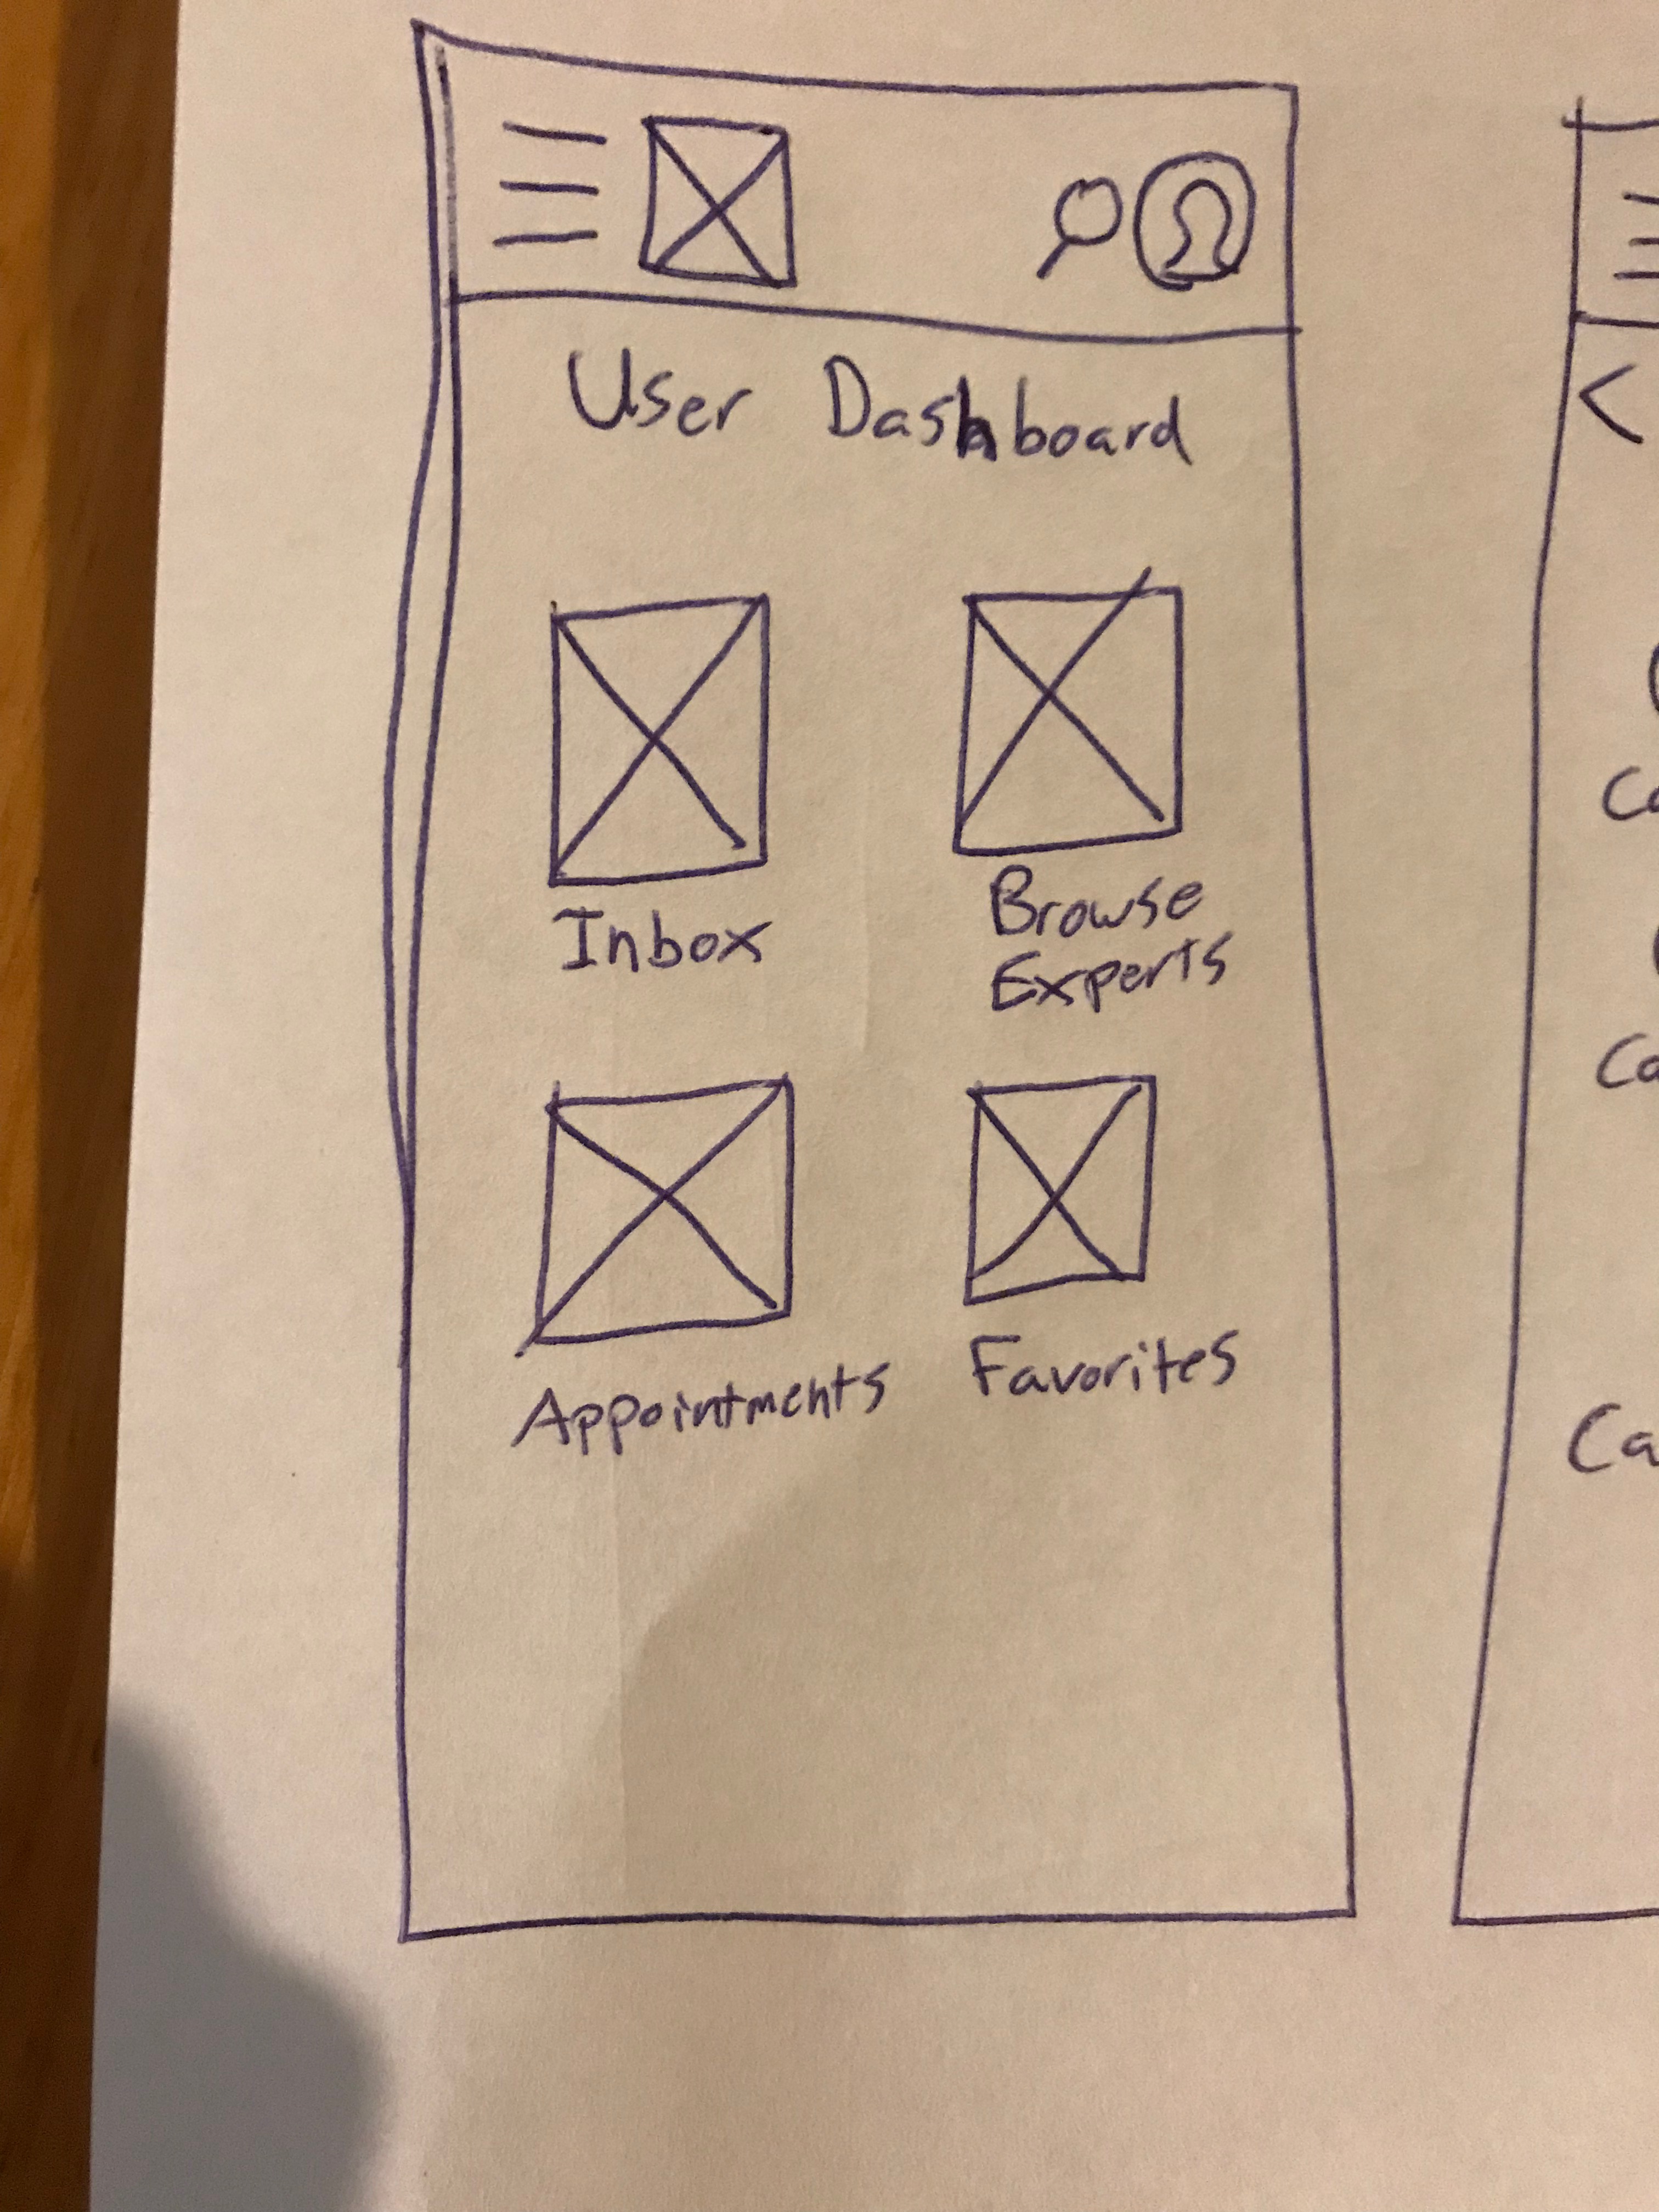 User Dashboard
Inbox
Browse
Experts
Appointments
Favorites
<